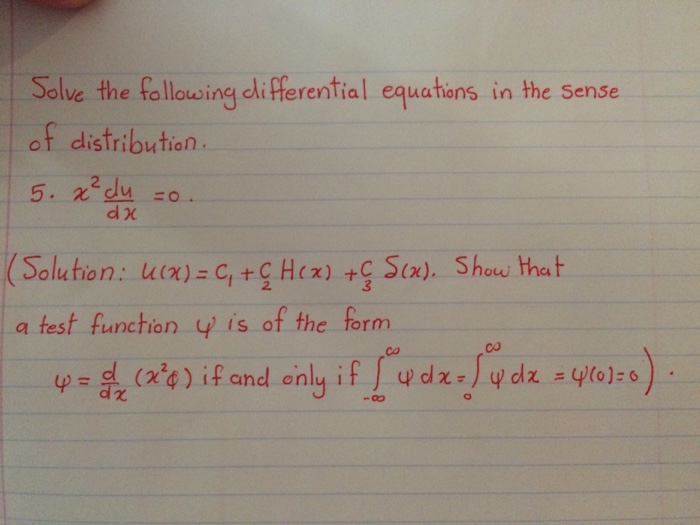 Solve the following differential equations in the sense
of distribution.
5. x² du/dx = 0.
(Solution: u(x) = C₁ + C₂ H(x) + C₃ S(x). Show that
a test function ψ is of the form
ψ = d/dx (x²φ) if and only if ∫_{-∞}^{∞} ψ dx = ∫_{0}^{∞} ψ dx = ψ(0) = 0).